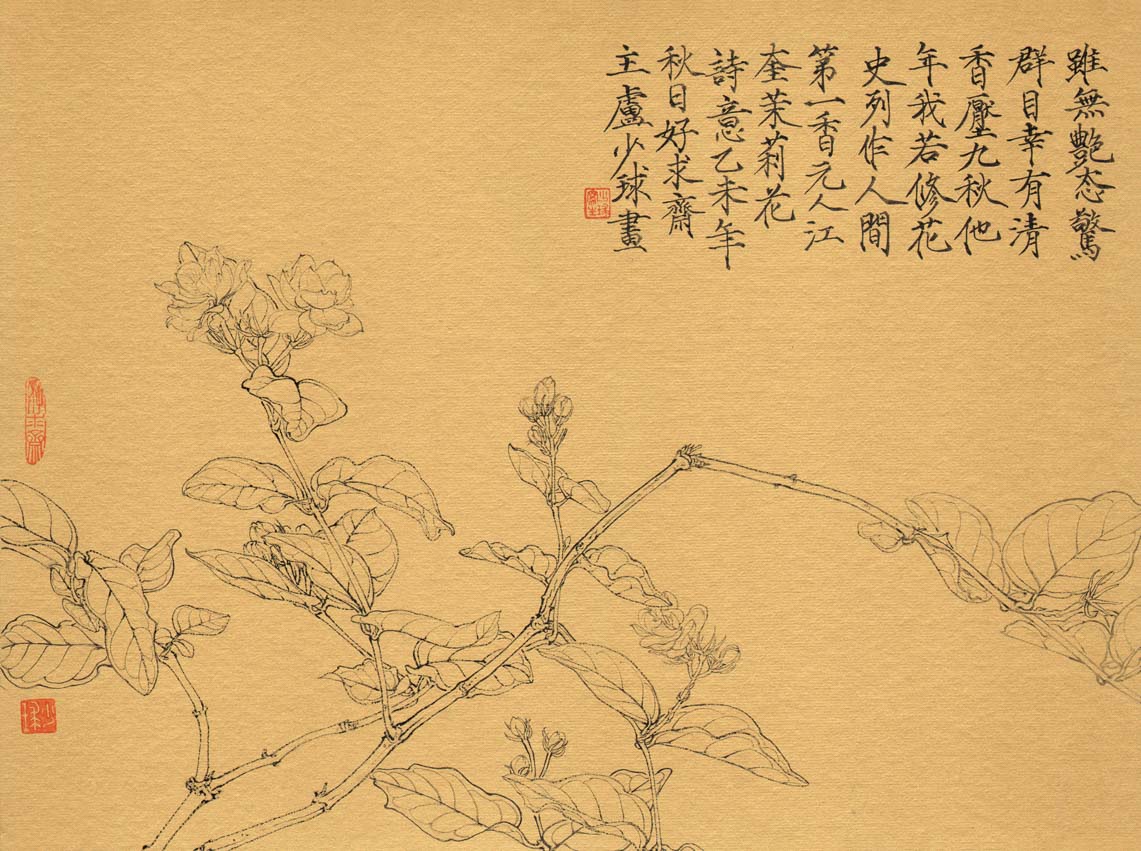 雖無艷态驚
群目幸有清
香壓九秋他
年我若修花
史列作人間
第一香元人江
奎茉莉花
詩意乙未年
秋日好求齋
主盧少球畫
少球